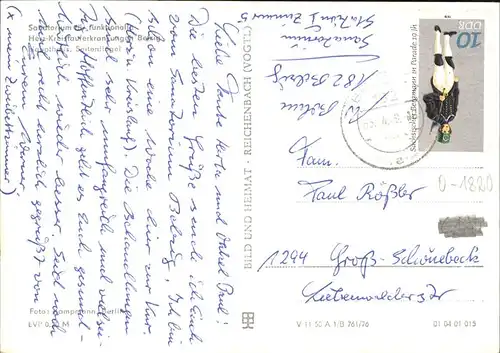 Sanatorium für funktionelle
Herz-Kreislauferkrankungen Belzig
Haupthaus, Seitenflügel
Liebe Tante Herta und Onkel Paul!
Die besten Grüße sende ich Euch
vom Sanatorium Belzig. Ich bin
schon eine Woche hier zur Kur.
Die Behandlungen
sind sehr umfangreich und vielsei-
tig. Hoffentlich geht es Euch gesund-
heitlich wieder besser. Seid nun
recht herzlich gegrüßt von
(x mein Zweibettzimmer)
Foto: Kampmann, Berlin
BILD UND HEIMAT REICHENBACH (VOGTL)
182 Belzig
Sanatorium
Station I Zimmer 5
10
DDR
Sächsischer Bergmann in Parade 19. Jh.
Fam.
Paul Rößler
1294 Groß-Schönebeck
Liebenwalder Str
0-1820
V 11 50 A 1/B 761/76
01 04 01 015